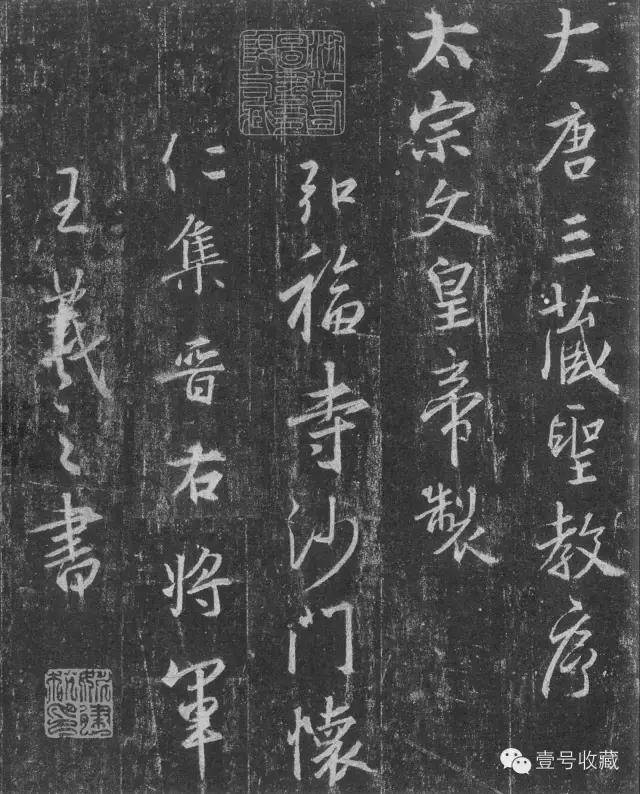 大唐三藏聖教序
太宗文皇帝製
弘福寺沙門懷
仁集晋右将軍
王羲之書
壹号收藏